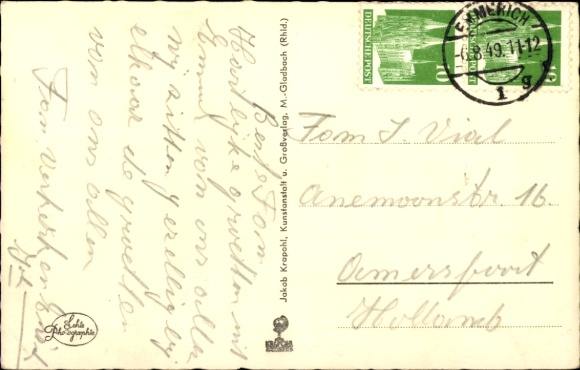 Beste Tom
Hartelijke groetten uit
Emm. van ons allen
wij zitten gezellig bij
elkaar de groetten
van ons allen
Tom
EMMERICH
-6.8.49.11-12
g
1
DEUTSCHE POST
10
DEUTSCHE POST
Fam J. Vial
Anemoonstr. 16.
Amersfoort
Holland
Jakob Krapohl, Kunstanstalt u. Großverlag, M.-Gladbach (Rhld.)
Echte
Photographie